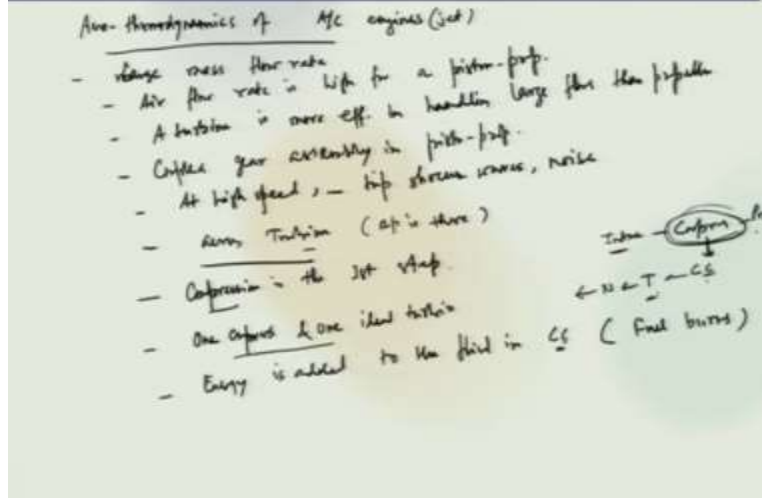 Aero-thermodynamics of A/C engines (jet)
- Large mass flow rate
- Air flow rate is high for a piston-prop.
- A turbine is more eff. in handling large flow than propeller
- Complex gear assembly in piston-prop.
- At high speed, - tip shock waves, noise
- across Turbine (Δp is there)
- Compression is the 1st step.
- One compres & one ideal turbin
- Energy is added to the fluid in CC (fuel burns)
Intake - Compres
← N ← T ← CC